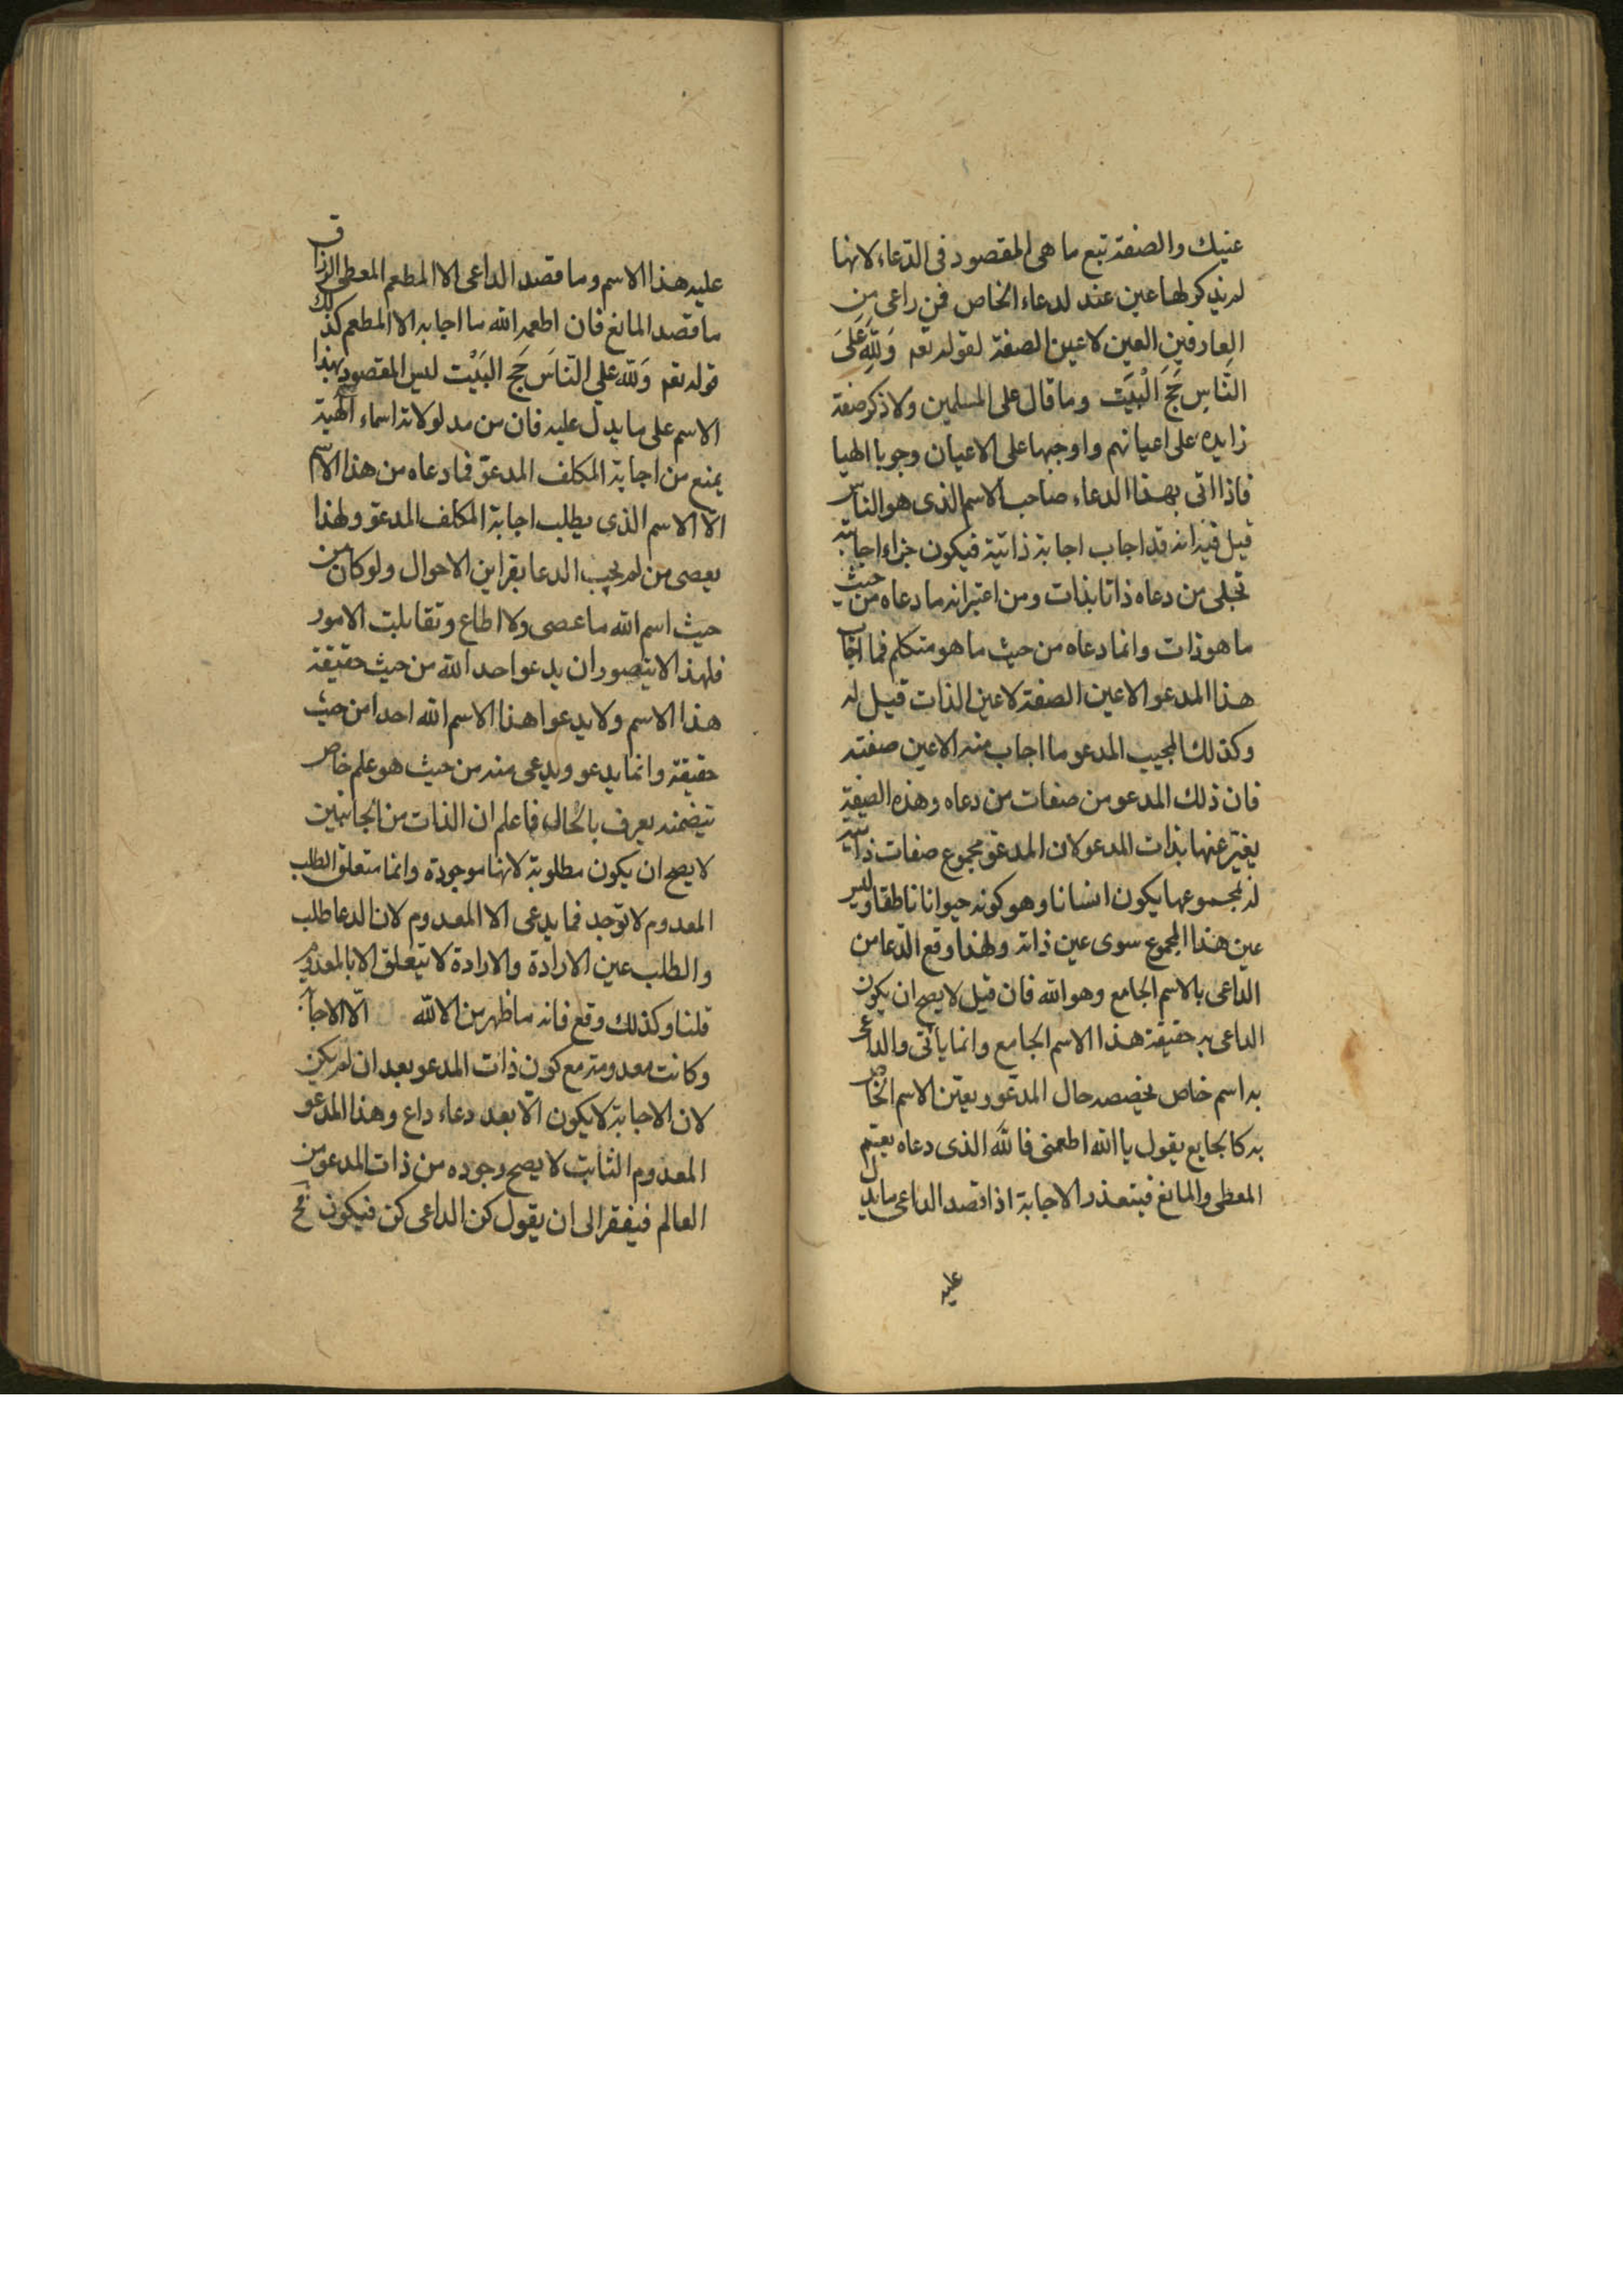 عنيك والصفة تبع ما هى المقصود فى الدّعاء لانها
لم يذكر لها عين عند لدعاء الخاص فمن راعى من
العارفين العين لا عين الصفة لقوله تعم وَلِلّهِ عَلَى
النَّاسِ حَجَّ الْبَيَت وما قال على المسلمين ولا ذكر صفة
زايده على اعيانهم واوجبها على الاعيان وجوبا الهيا
فاذا اتى بهذا الدعاء صاحب الاسم الذى هو الناس
قيل فيه انه قد اجاب اجابة ذاتية فيكون جزاء اجابة
تجلى من دعاه ذاتا بذات ومن اعتبر انه ما دعاه من حيث
ما هو ذات وانما دعاه من حيث ما هو متكلم فما اجاب
هذا المدعو الا عين الصفة لا عين الذات قيل له
وكذلك المجيب المدعو ما اجاب منه الا عين صفته
فان ذلك المدعو من صفات من دعاه وهذه الصفة
يغير عنها بذات المدعو لان المدعوّ مجموع صفات ذاتية
له بمجموعها يكون انسانا وهو كونه حيوانا ناطقا وليس
عين هذا المجموع سوى عين ذاته ولهذا وقع الدّعا من
الداعى بالاسم الجامع وهو الله فان قيل لا يصح ان يكون
الداعى به حقيقة هذا الاسم الجامع وانما ياتى والداعى
به اسم خاص يخصصه حال المدعوّ ويعيّن الاسم الخاص
به كالجايع يقول يا الله اطعمنى فالله الذى دعاه يعمّ
المعطى والمانع فيتعذر الاجابة اذا قصد الداعى ما يدل
عليه
عليه هذا الاسم وما قصد الداعى الا المطعم المعطى الرزاق
ما قصد المانع فان اطعمه الله ما اجابه الا المطعم كذلك
قوله تعم وَلله على النّاسَ حَج البَيْت ليس المقصود بهذا
الاسم على ما يدل عليه فان من مدلولاته اسماء الٓهية
يمنع من اجابة المكلف المدعوّ فما دعاه من هذا الاسم
الّا الاسم الذى يطلب اجابة المكلف المدعو ولهذا
يعصى من لم يجب الدعا بقراين الاحوال ولو كان من
حيث اسم الله ما عصى ولا اطاع وتقابلت الامور
فلهذا لا يتصور ان يدعو احد الله من حيث حقيقة
هذا الاسم ولا يدعو هذا الاسم الله احدا من حيث
حقيقة وانما يدعو ويدعى منه من حيث هو علم خاص
تتضمنه يعرف بالحال فاعلم ان الذات من الجانبين
لا يصح ان يكون مطلوبة لانها موجودة وانما متعلق الطلب
المعدوم لا توجد فما يدعى الا المعدوم لان الدعا طلب
والطلب عين الارادة والارادة لا تتعلق الا بالمعدوم
قلنا وكذلك وقع فانه ما ظهر من الالله الّا الاجابة
وكانت معدومة مع كون ذات المدعو بعد ان لم يكن
لان الاجابة لا يكون الّا بعد دعاء داع وهذا المدعو
المعدوم الثابت لا يصح وجوده من ذات المدعو من
العالم فيفقر الى ان يقول كن الداعى كن فيكون فح